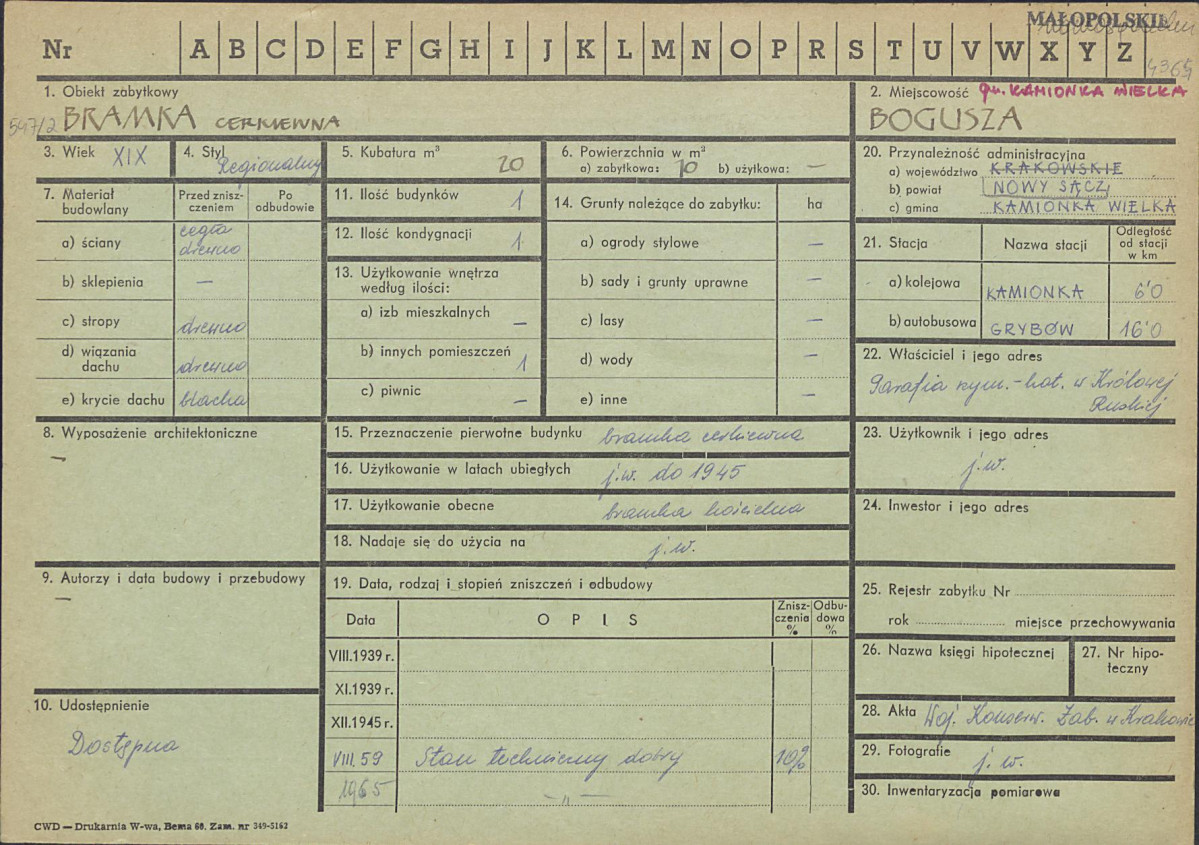 MAŁOPOLSKIE
Nr A B C D E F G H I J K L M N O P R S T U V W X Y Z
4365
1. Obiekt zabytkowy
547/2 BRAMKA CERKIEWNA
2. Miejscowość gm. KAMIONKA WIELKA
BOGUSZA
3. Wiek XIX
4. Styl Regionalny
5. Kubatura m³
20
6. Powierzchnia w m²
a) zabytkowa: 10 b) użytkowa: —
20. Przynależność administracyjna
a) województwo KRAKOWSKIE
b) powiat NOWY SĄCZ
c) gmina KAMIONKA WIELKA
7. Materiał budowlany
Przed znisz-czeniem
Po odbudowie
a) ściany cegła drewno
b) sklepienia —
c) stropy drewno
d) wiązania dachu drewno
e) krycie dachu blacha
11. Ilość budynków 1
12. Ilość kondygnacji 1
13. Użytkowanie wnętrza
według ilości:
a) izb mieszkalnych —
b) innych pomieszczeń 1
c) piwnic —
14. Grunty należące do zabytku: ha
a) ogrody stylowe —
b) sady i grunty uprawne —
c) lasy —
d) wody —
e) inne —
21. Stacja Nazwa stacji Odległość od stacji w km
a) kolejowa KAMIONKA 6'0
b) autobusowa GRYBÓW 16'0
22. Właściciel i jego adres
Parafia rzym.-kat. w Królowej
Ruskiej
8. Wyposażenie architektoniczne
—
15. Przeznaczenie pierwotne budynku bramka cerkiewna
16. Użytkowanie w latach ubiegłych j.w. do 1945
17. Użytkowanie obecne bramka kościelna
18. Nadaje się do użycia na j.w.
23. Użytkownik i jego adres
j.w.
24. Inwestor i jego adres
9. Autorzy i data budowy i przebudowy
—
19. Data, rodzaj i stopień zniszczeń i odbudowy
Data OPIS Znisz-czenia % Odbu-dowa %
VIII.1939 r.
XI.1939 r.
XII.1945 r.
VIII.59 Stan techniczny dobry 10%
1965 — „ —
25. Rejestr zabytku Nr
rok miejsce przechowywania
26. Nazwa księgi hipotecznej
27. Nr hipo-
teczny
10. Udostępnienie
Dostępna
28. Akta Woj. Konserw. Zab. w Krakowie
29. Fotografie j.w.
30. Inwentaryzacja pomiarowa
CWD — Drukarnia W-wa, Bema 60. Zam. nr 349-5162